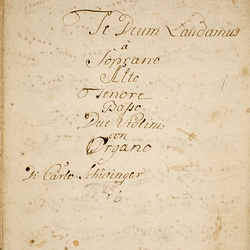 Te Deum Laudamus
à
Soprano
Alto
Tenore
Basso
Due Violini
con
Organo
Di Carlo Schiringer